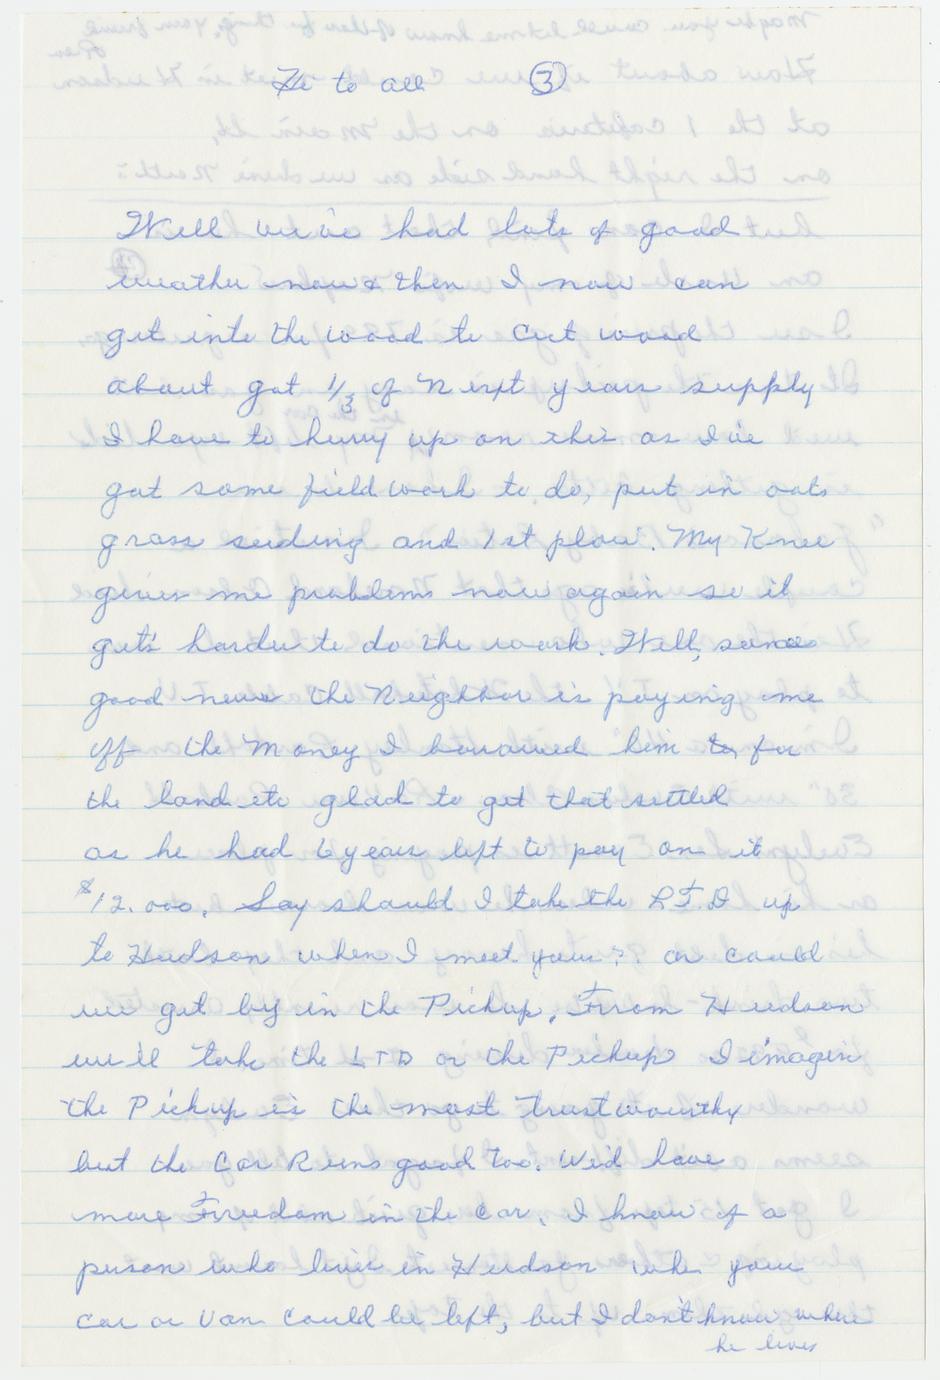 Hi to all ③
Well we've had lots of good
weather now & then I now can
get into the wood to cut wood
about got 1/3 of next years supply
I have to hurry up on this as I've
got some field work to do, put in oats
grass seeding and 1st plow. My Knee
gives me problems now again so it
get's harder to do the work. Well, some
good news the Neighbor is paying me
off the Money I borrowed him to for
the land etc glad to get that settled
as he had 6 years left to pay on it
$12.000. Say should I take the LTD up
to Hudson when I meet you?? or could
we get by in the Pickup. From Hudson
we'll take the LTD or the Pickup I imagin
the Pickup is the most trustworthy
but the Car Runs good too. We'd have
more Freedom in the car, I know of a
person who lives in Hudson whe your
car or van could be left, but I don't know where
he lives